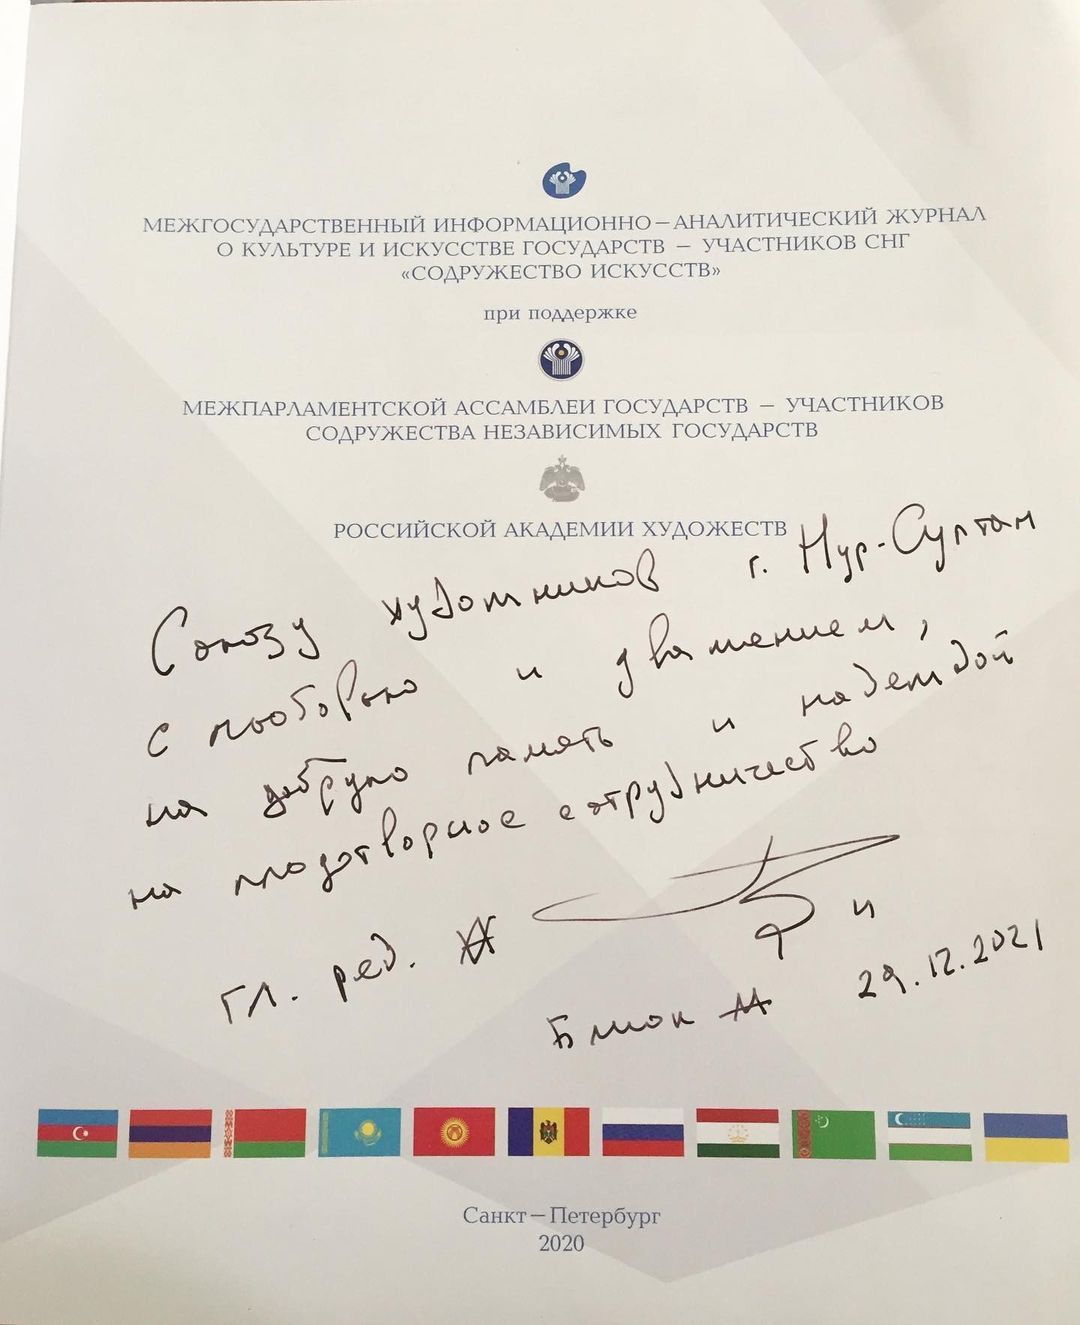 МЕЖГОСУДАРСТВЕННЫЙ ИНФОРМАЦИОННО – АНАЛИТИЧЕСКИЙ ЖУРНАЛ
О КУЛЬТУРЕ И ИСКУССТВЕ ГОСУДАРСТВ – УЧАСТНИКОВ СНГ
«СОДРУЖЕСТВО ИСКУССТВ»
при поддержке
МЕЖПАРЛАМЕНТСКОЙ АССАМБЛЕИ ГОСУДАРСТВ – УЧАСТНИКОВ
СОДРУЖЕСТВА НЕЗАВИСИМЫХ ГОСУДАРСТВ
РОССИЙСКОЙ АКАДЕМИИ ХУДОЖЕСТВ
Союзу художников г. Нур-Султан
с любовью и уважением,
на добрую память и надеждой
на плодотворное сотрудничество
гл. ред.
29.12.2021
Санкт – Петербург
2020